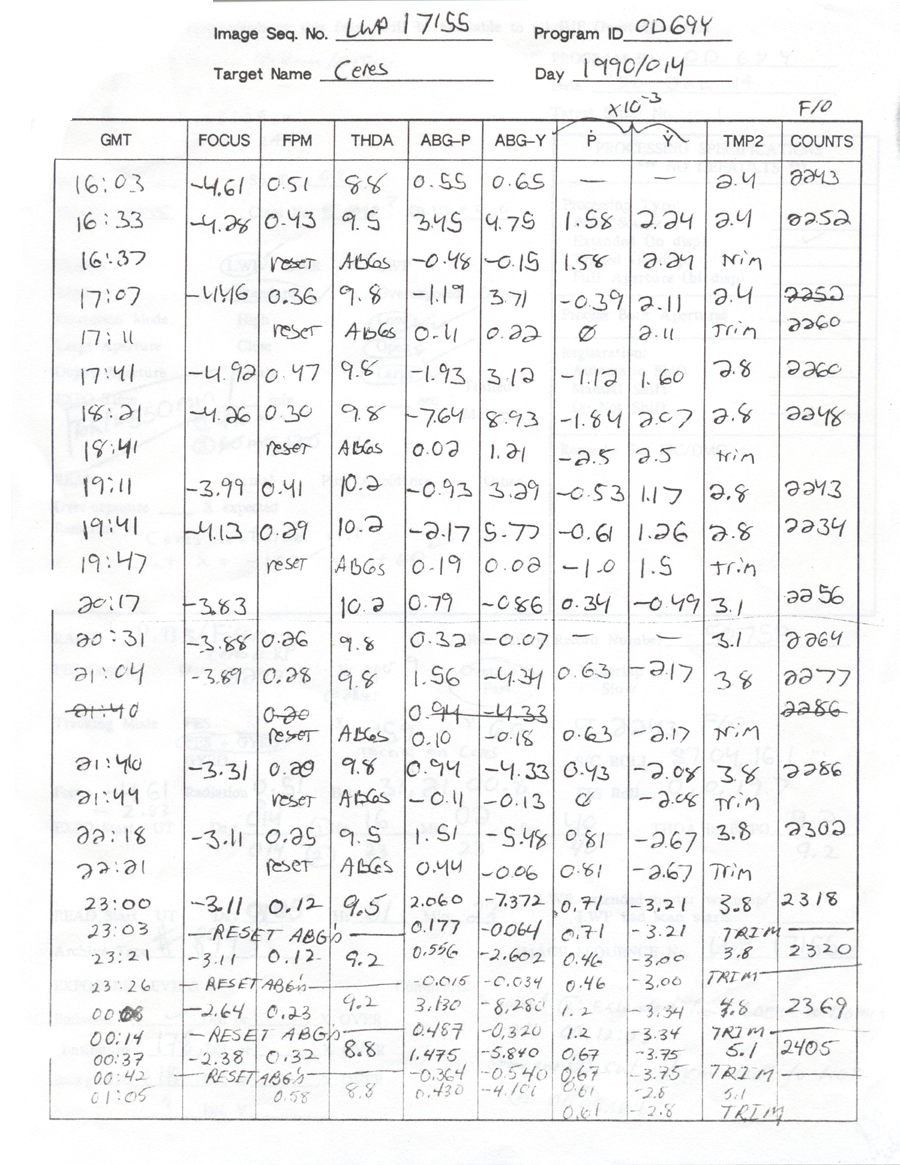 Image Seq. No. LWP 17155 Program ID OD69Y
Target Name Ceres Day 1990/014
x10⁻³ F/O
GMT FOCUS FPM THDA ABG-P ABG-Y Ṗ Ẏ TMP2 COUNTS
16:03 -4.61 0.51 8.8 0.55 0.65 — — 2.4 2243
16:33 -4.28 0.43 9.5 3.45 4.75 1.58 2.24 2.4 2252
16:37 reset ABGs -0.48 -0.15 1.58 2.24 Trim
17:07 -4.46 0.36 9.8 -1.19 3.71 -0.39 2.11 2.4 2252
17:11 reset ABGs 0.11 0.22 Ø 2.11 Trim 2260
17:41 -4.92 0.47 9.8 -1.93 3.12 -1.12 1.60 2.8 2260
18:21 -4.26 0.30 9.8 -7.64 8.93 -1.84 2.07 2.8 2248
18:41 reset ABGs 0.02 1.21 -2.5 2.5 trim
19:11 -3.99 0.41 10.2 -0.93 3.29 -0.53 1.17 2.8 2243
19:41 -4.13 0.29 10.2 -2.17 5.77 -0.61 1.26 2.8 2234
19:47 reset ABGs 0.19 0.02 -1.0 1.5 trim
20:17 -3.83 10.2 0.79 -0.86 0.34 -0.49 3.1 2256
20:31 -3.88 0.26 9.8 0.32 -0.07 — — 3.1 2264
21:04 -3.89 0.28 9.8 1.56 -4.34 0.63 -2.17 3.8 2277
21:40 0.20 0.94 -4.33 2286
reset ABGs 0.10 -0.18 0.63 -2.17 Trim
21:40 -3.31 0.20 9.8 0.94 -4.33 0.43 -2.08 3.8 2286
21:44 reset ABGs -0.11 -0.13 Ø -2.08 Trim
22:18 -3.11 0.25 9.5 1.51 -5.48 0.81 -2.67 3.8 2302
22:21 reset ABGs 0.44 -0.06 0.81 -2.67 Trim
23:00 -3.11 0.12 9.5 2.060 -7.372 0.71 -3.21 3.8 2318
23:03 RESET ABG's 0.177 -0.064 0.71 -3.21 TRIM
23:21 -3.11 0.12 9.2 0.556 -2.602 0.46 -3.00 3.8 2320
23:26 RESET ABG's -0.015 -0.034 0.46 -3.00 TRIM
00:08 -2.64 0.23 9.2 3.130 -8.280 1.2 -3.34 4.8 2369
00:14 RESET ABG's 0.487 -0.320 1.2 -3.34 TRIM
00:37 -2.38 0.32 8.8 1.475 -5.840 0.67 -3.75 5.1 2405
00:42 RESET ABG's -0.364 -0.540 0.67 -3.75 TRIM
01:05 0.58 8.8 0.430 -4.101 0.61 -2.8 5.1
0.61 -2.8 TRIM